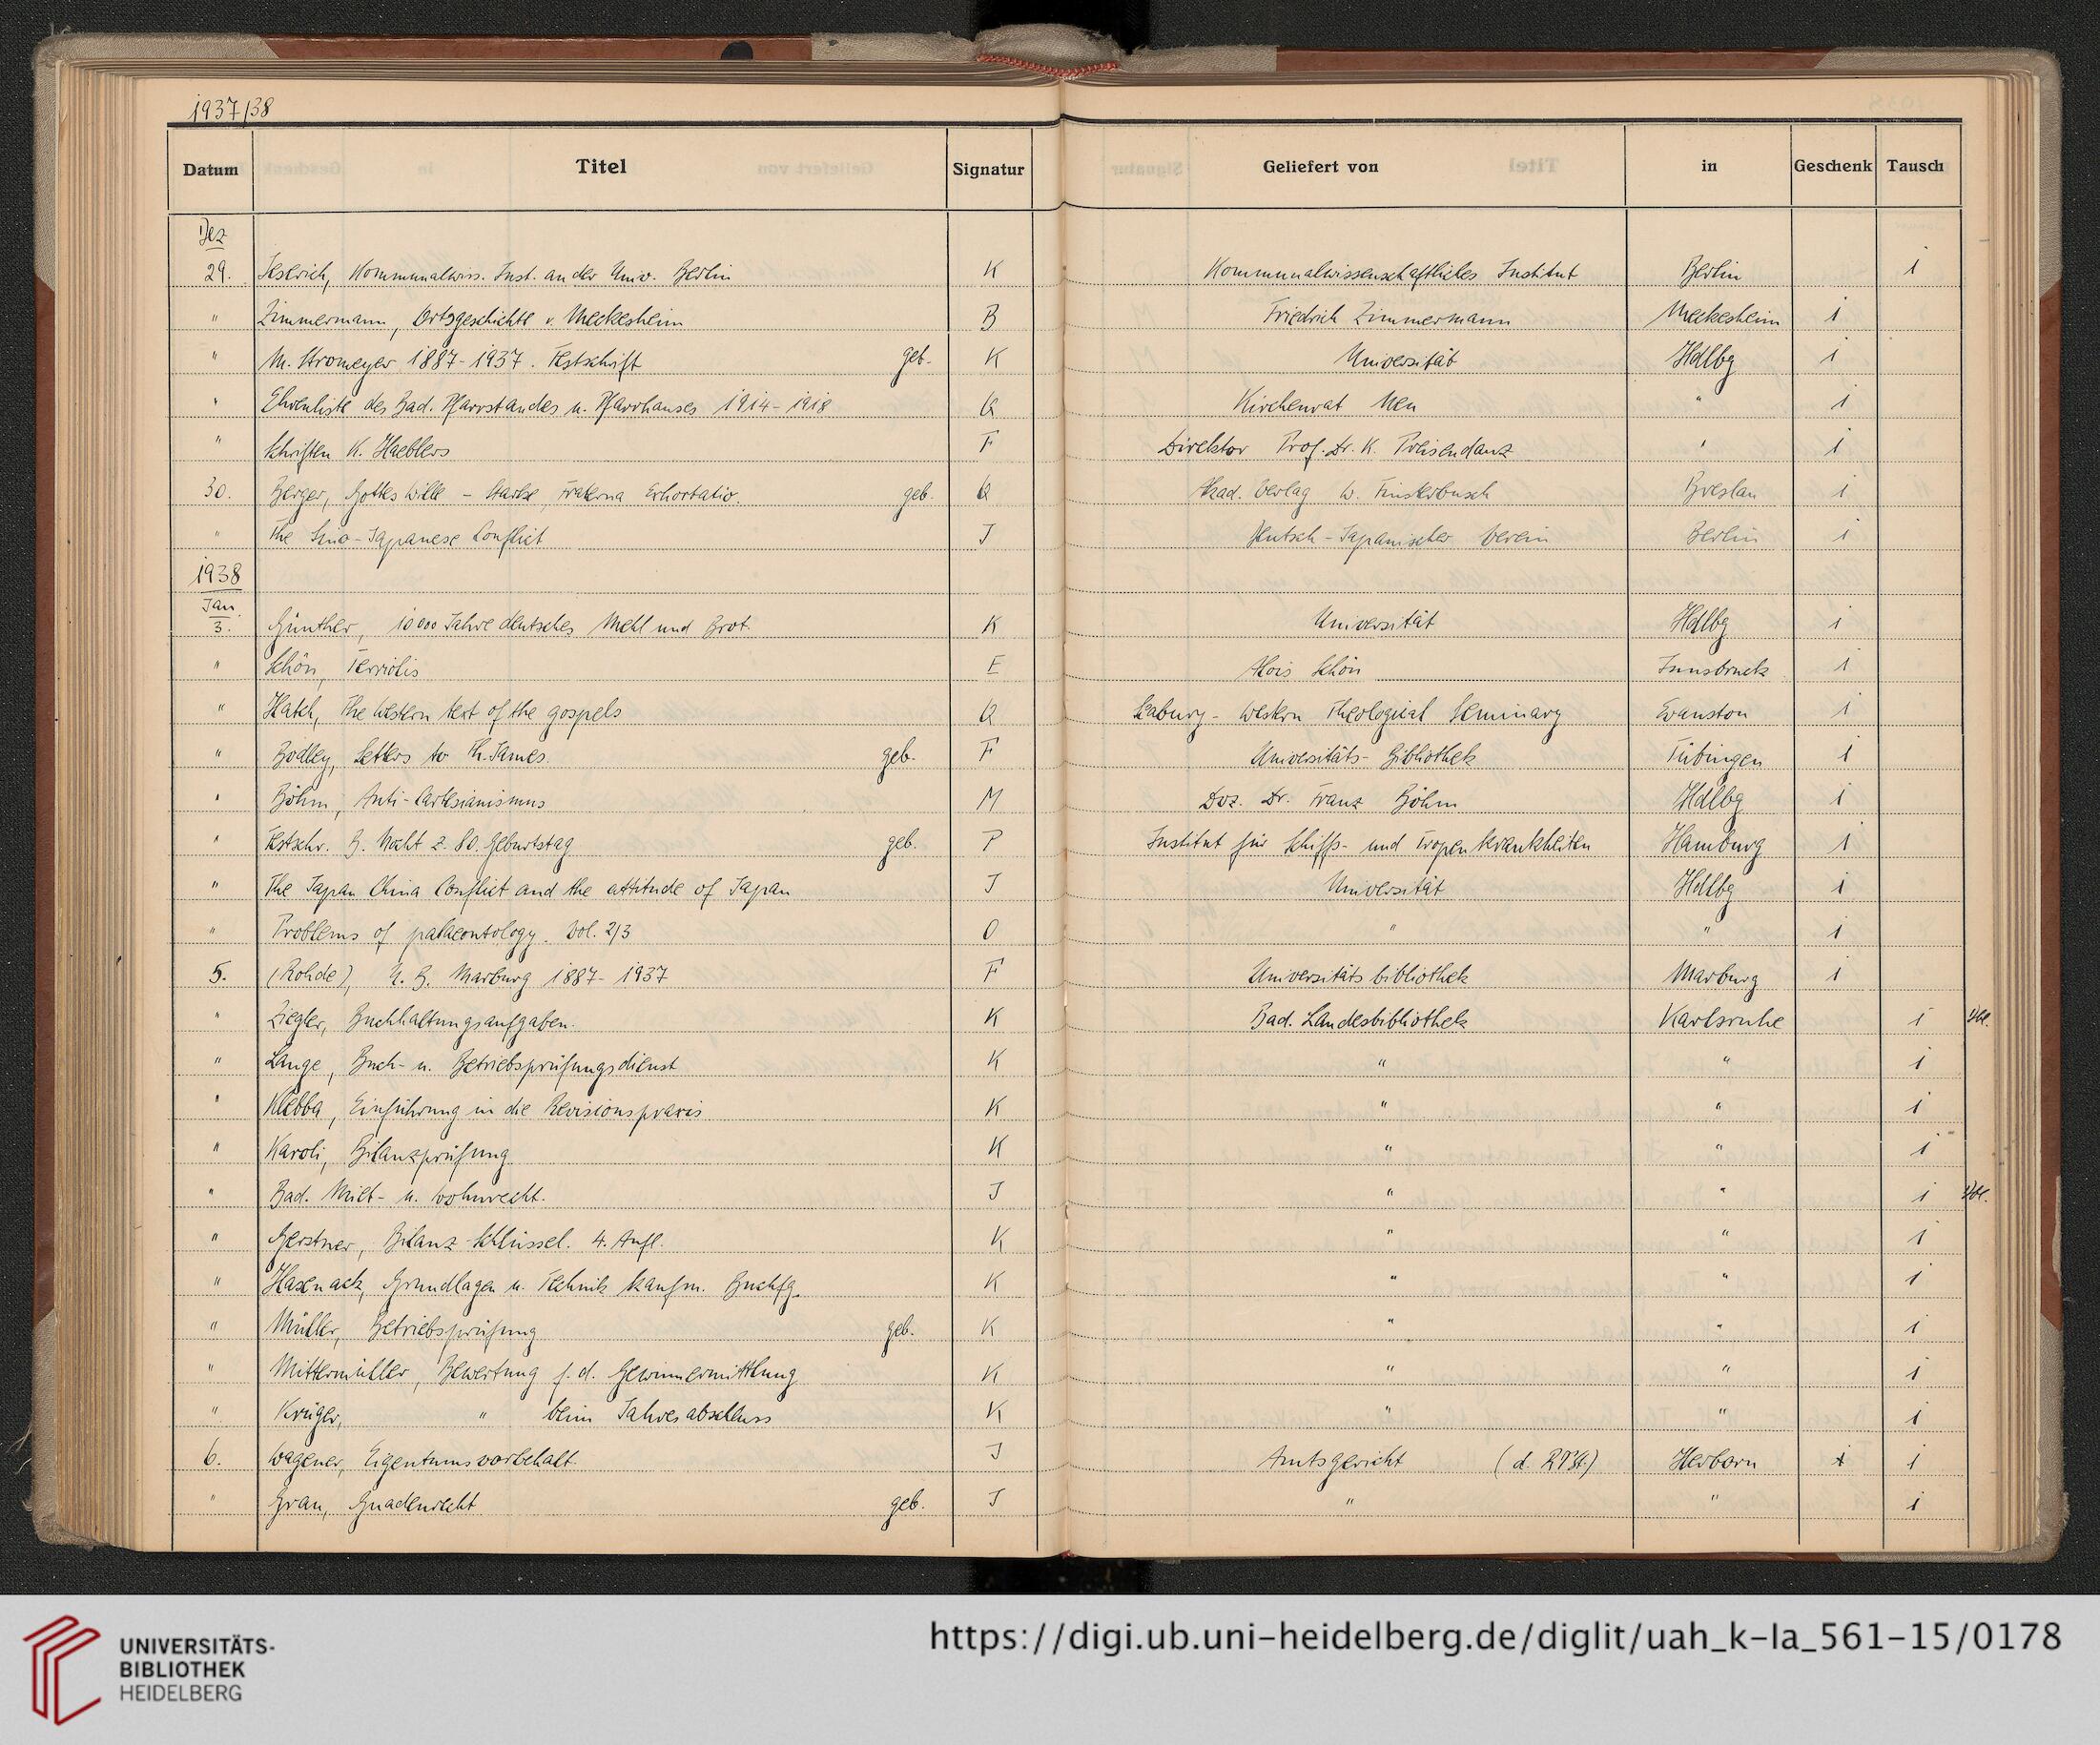 1937/38
Datum Titel Signatur Geliefert von in Geschenk Tausch
Dez
29. Jeserich, Kommunalwiss. Inst. an der Univ. Berlin K Kommunalwissenschaftliches Institut Berlin 1
" Zimmermann, Ortsgeschichte v. Meckesheim B Friedrich Zimmermann Meckesheim 1
" M. Stromeyer 1887-1937. Festschrift geb. K Universität Hdlbg 1
" Ehrenliste des Bad. Pfarrstandes u. Pfarrhauses 1914-1918 Q Kirchenrat Neu " 1
" Schriften K. Haeblers F Direktor Prof. Dr. K. Preisendanz " 1
30. Berger, Gottes Wille - Starke, Fraterna Exhortatio. geb. Q Akad. Verlag W. Finsterbusch Breslau 1
" The Sino-Japanese Conflict J Deutsch-Japanischer Verein Berlin 1
1938
Jan.
3. Günther, 10000 Jahre deutsches Mehl und Brot. K Universität Hdlbg 1
" Schön, Terriolis E Alois Schön Innsbruck 1
" Hatch, The western text of the gospels Q Seabury-Western Theological Seminary Evanston 1
" Bodley, Letters to Th. James. geb. F Universitäts-Bibliothek Tübingen 1
" Böhm, Anti-Cartesianismus M Doz. Dr. Franz Böhm Hdlbg 1
" Festschr. B. Nocht z. 80. Geburtstag geb. P Institut für Schiffs- und Tropenkrankheiten Hamburg 1
" The Japan China Conflict and the attitude of Japan J Universität Hdlbg 1
" Problems of palaeontology. Vol. 2/3 O " " 1
5. (Rohde), U. B. Marburg 1887-1937 F Universitätsbibliothek Marburg 1
" Ziegler, Buchhaltungsaufgaben. K Bad. Landesbibliothek Karlsruhe 1
" Lange, Buch- u. Betriebsprüfungsdienst K " " 1
" Klebba, Einführung in die Revisionspraxis K " " 1
" Karoli, Bilanzprüfung K " " 1
" Bad. Miet- u. Wohnrecht. J " " 1
" Gerstner, Bilanz-Schlüssel. 4. Aufl. K " " 1
" Hasenack, Grundlagen u. Technik kaufm. Buchfg. K " " 1
" Müller, Betriebsprüfung geb. K " " 1
" Mittermüller, Bewertung f. d. Gewinnermittlung K " " 1
" Krüger, " beim Jahresabschluss K " " 1
6. Wagener, Eigentumsvorbehalt. J Amtsgericht Herborn 1 1
" Grau, Gnadenrecht geb. J " " 1
UNIVERSITÄTS-
BIBLIOTHEK
HEIDELBERG
https://digi.ub.uni-heidelberg.de/diglit/uah_k-Ia_561-15/0178